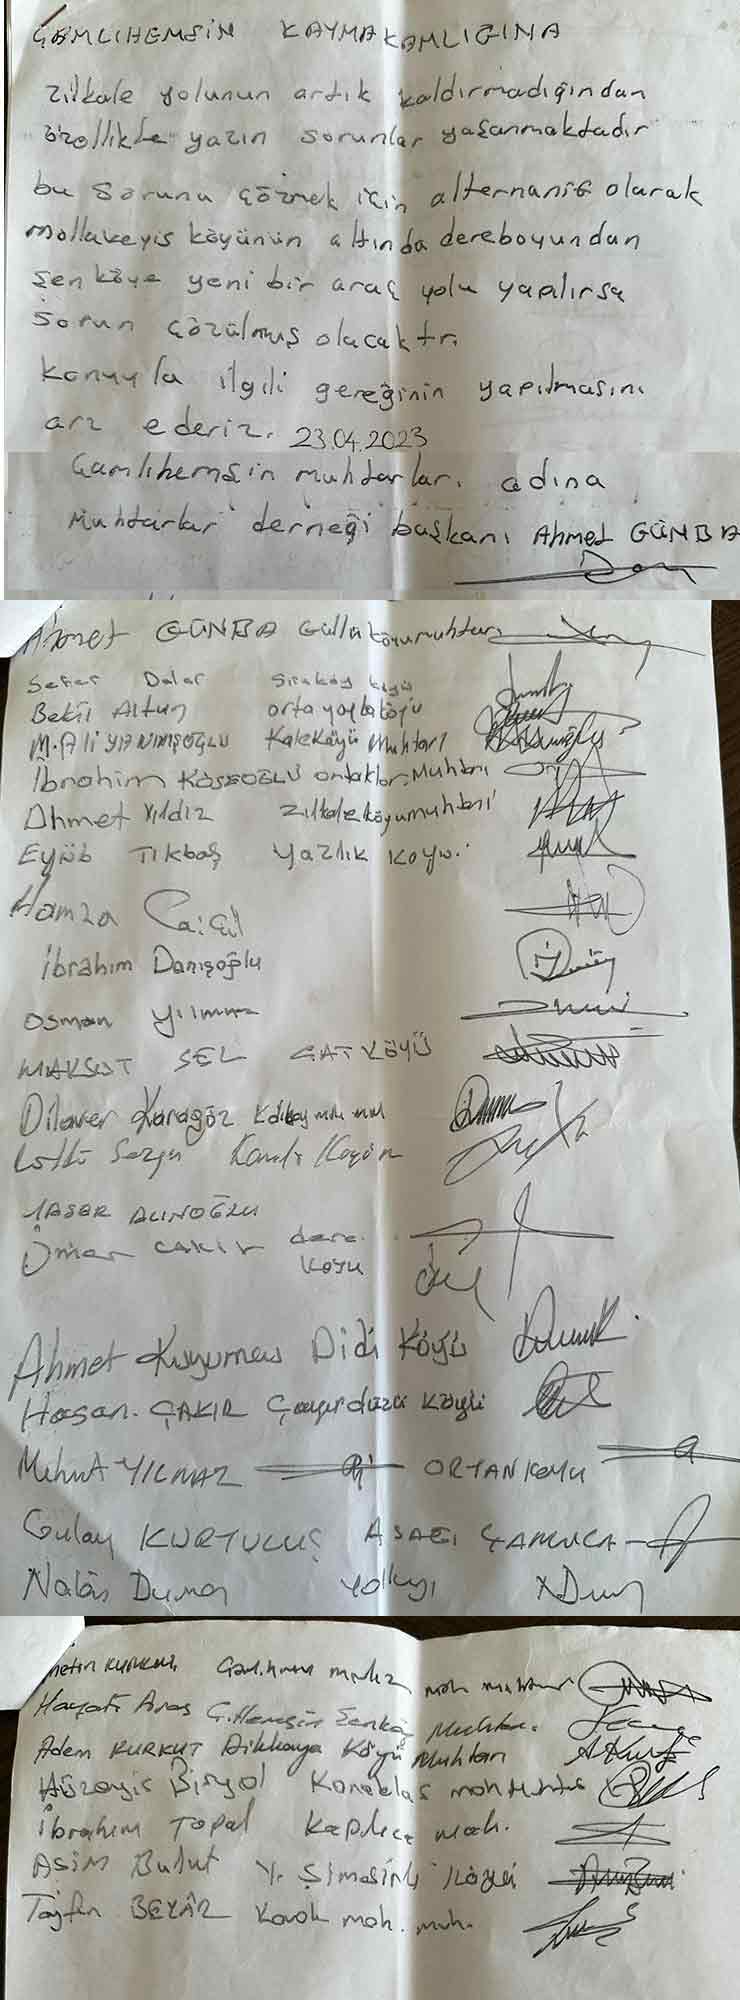 ÇAMLIHEMŞİN KAYMAKAMLIĞINA
Zilkale yolunun artık kaldırmadığından
özellikle yazın sorunlar yaşanmaktadır
bu sorunu çözmek için alternanif olarak
mollaveyis köyünün altında dereboyundan
Şenköye yeni bir araç yolu yapılırsa
Sorun çözülmüş olacaktr.
Konuyla ilgili gereğinin yapılmasını
arz ederiz. 23.04.2023
Çamlıhemşin muhtarları adına
Muhtarlar derneği başkanı Ahmet GÜNBA
Ahmet GÜNBA Güllü köyü muhtarı
Sefer Dalar Sıraköy köyü
Bekir Altun ortayayla köyü
M.Ali YANIMŞOĞLU Kaleköyü Muhtarı
İbrahim KÖSEOĞLU ortaklar Muhtarı
Ahmet Yıldız Zilkale köyü muhtarı
Eyüb TIKBAŞ Yazlık Köyü
Hamza
İbrahim Danışoğlu
Osman Yılmaz
MAKSUT SEL ÇAT KÖYÜ
Dilaver Karagöz
Sezgin
YAŞAR ALINOĞLU
Ömer CAKIR dere
köyü
Ahmet Kuyumcu Didi Köyü
Hasan. ÇAKIR Çayırdüzü Köyü
YILMAZ ORTAN KÖYÜ
Gülay KURTULUŞ AŞAĞI ÇAMLICA
Duman Yolkıyı
Metin mrkz mah muhtarı
Hayati Aras Ç.Hemşin Şenköy Muhtarı.
Adem KURKUT Dikkaya Köyü Muhtarı
Konaklar mah Muhtar
İbrahim Topal Kaplıca mah.
Asım Bulut Y. Şimşirli Köyü
BEYAZ Kavak mah. muh.